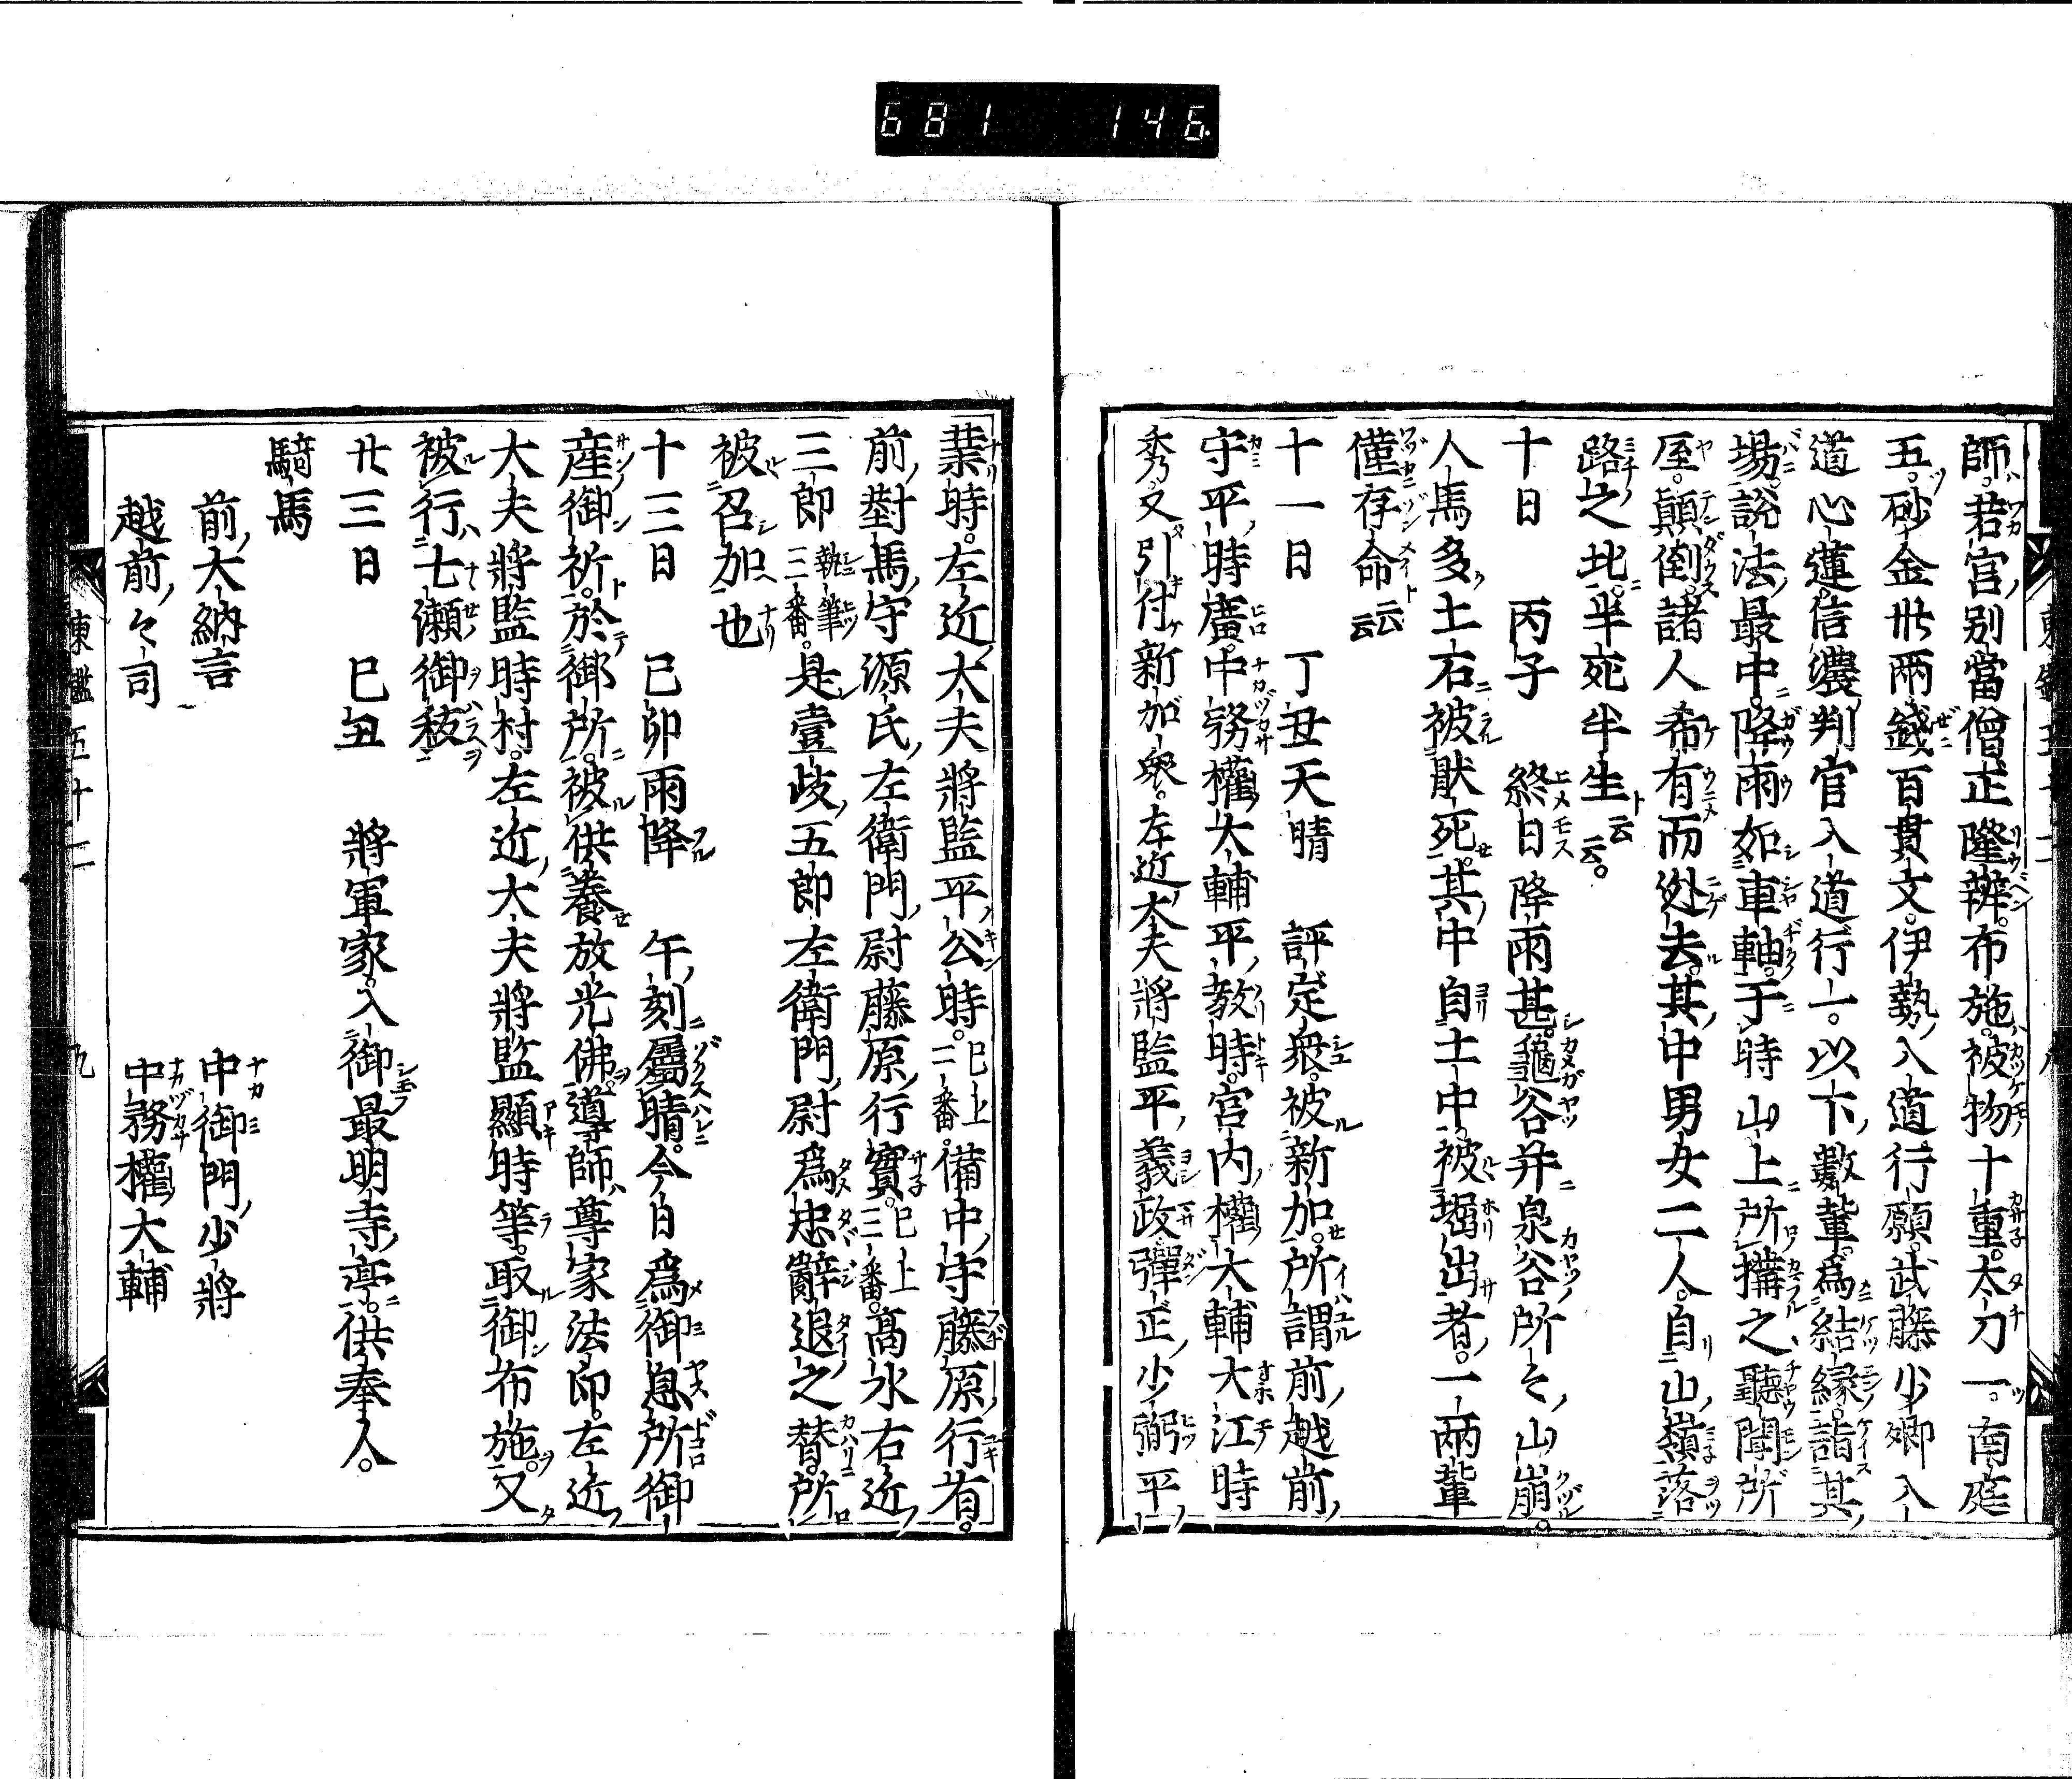 681 146.
師。若宮別當僧正隆辨。布施。被物十重。太刀一。南庭
五。砂金卅兩。錢百貫文。伊勢入道行願。武藤少卿入
道心蓮。信濃判官入道行一。以下數輩。爲結緣詣其
場。說法最中。降雨如車軸。于時山上所搆之聽聞所
屋。顚倒。諸人希有而迯去。其中男女二人。自山嶺落
路之北。半死半生云云。
十日 丙子 終日降雨甚。龜谷并泉谷所々山崩。
人馬多土石被厭死。其中自土中被堀出者。一兩輩
僅存命云云
十一日 丁丑天晴 評定衆。被新加。所謂前越前
守平時廣。中務權大輔平教時。宮内權大輔大江時
秀。又引付新加衆。左近大夫將監平義政彈正少弼平
業時。左近大夫將監平公時。已上二番。備中守藤原行有。
前對馬守源氏。左衛門尉藤原行實。已上三番。髙水右近
三郎執筆三番。是壹岐五郎左衛門尉爲忠辭退之替。所
被召加也
十三日 己卯雨降 午刻屬晴。今日爲御息所御
産御祈。於御所。被供養放光佛。導師尊家法印。左近
大夫將監時村。左近大夫將監顯時等。取御布施。又
被行七瀬御秡
廿三日 己丑 將軍家。入御最明寺亭。供奉人。
騎馬
前大納言 中御門少將
越前々司 中務權大輔
東鑑五十二 九